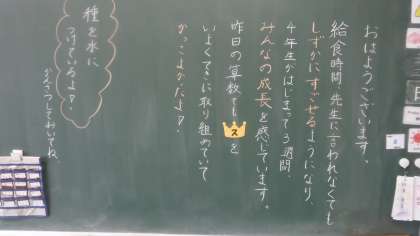 おはようございます。
給食時間、先生に言われなくても
しずかにすごせるようになり、
4年生がはじまって3週間、
みんなの成長を感じています。
昨日の算数でも ス を
いよくてきに取り組めていて
かっこよかったよ!
種を水に
つけているよ!
かんさつしておいてね。